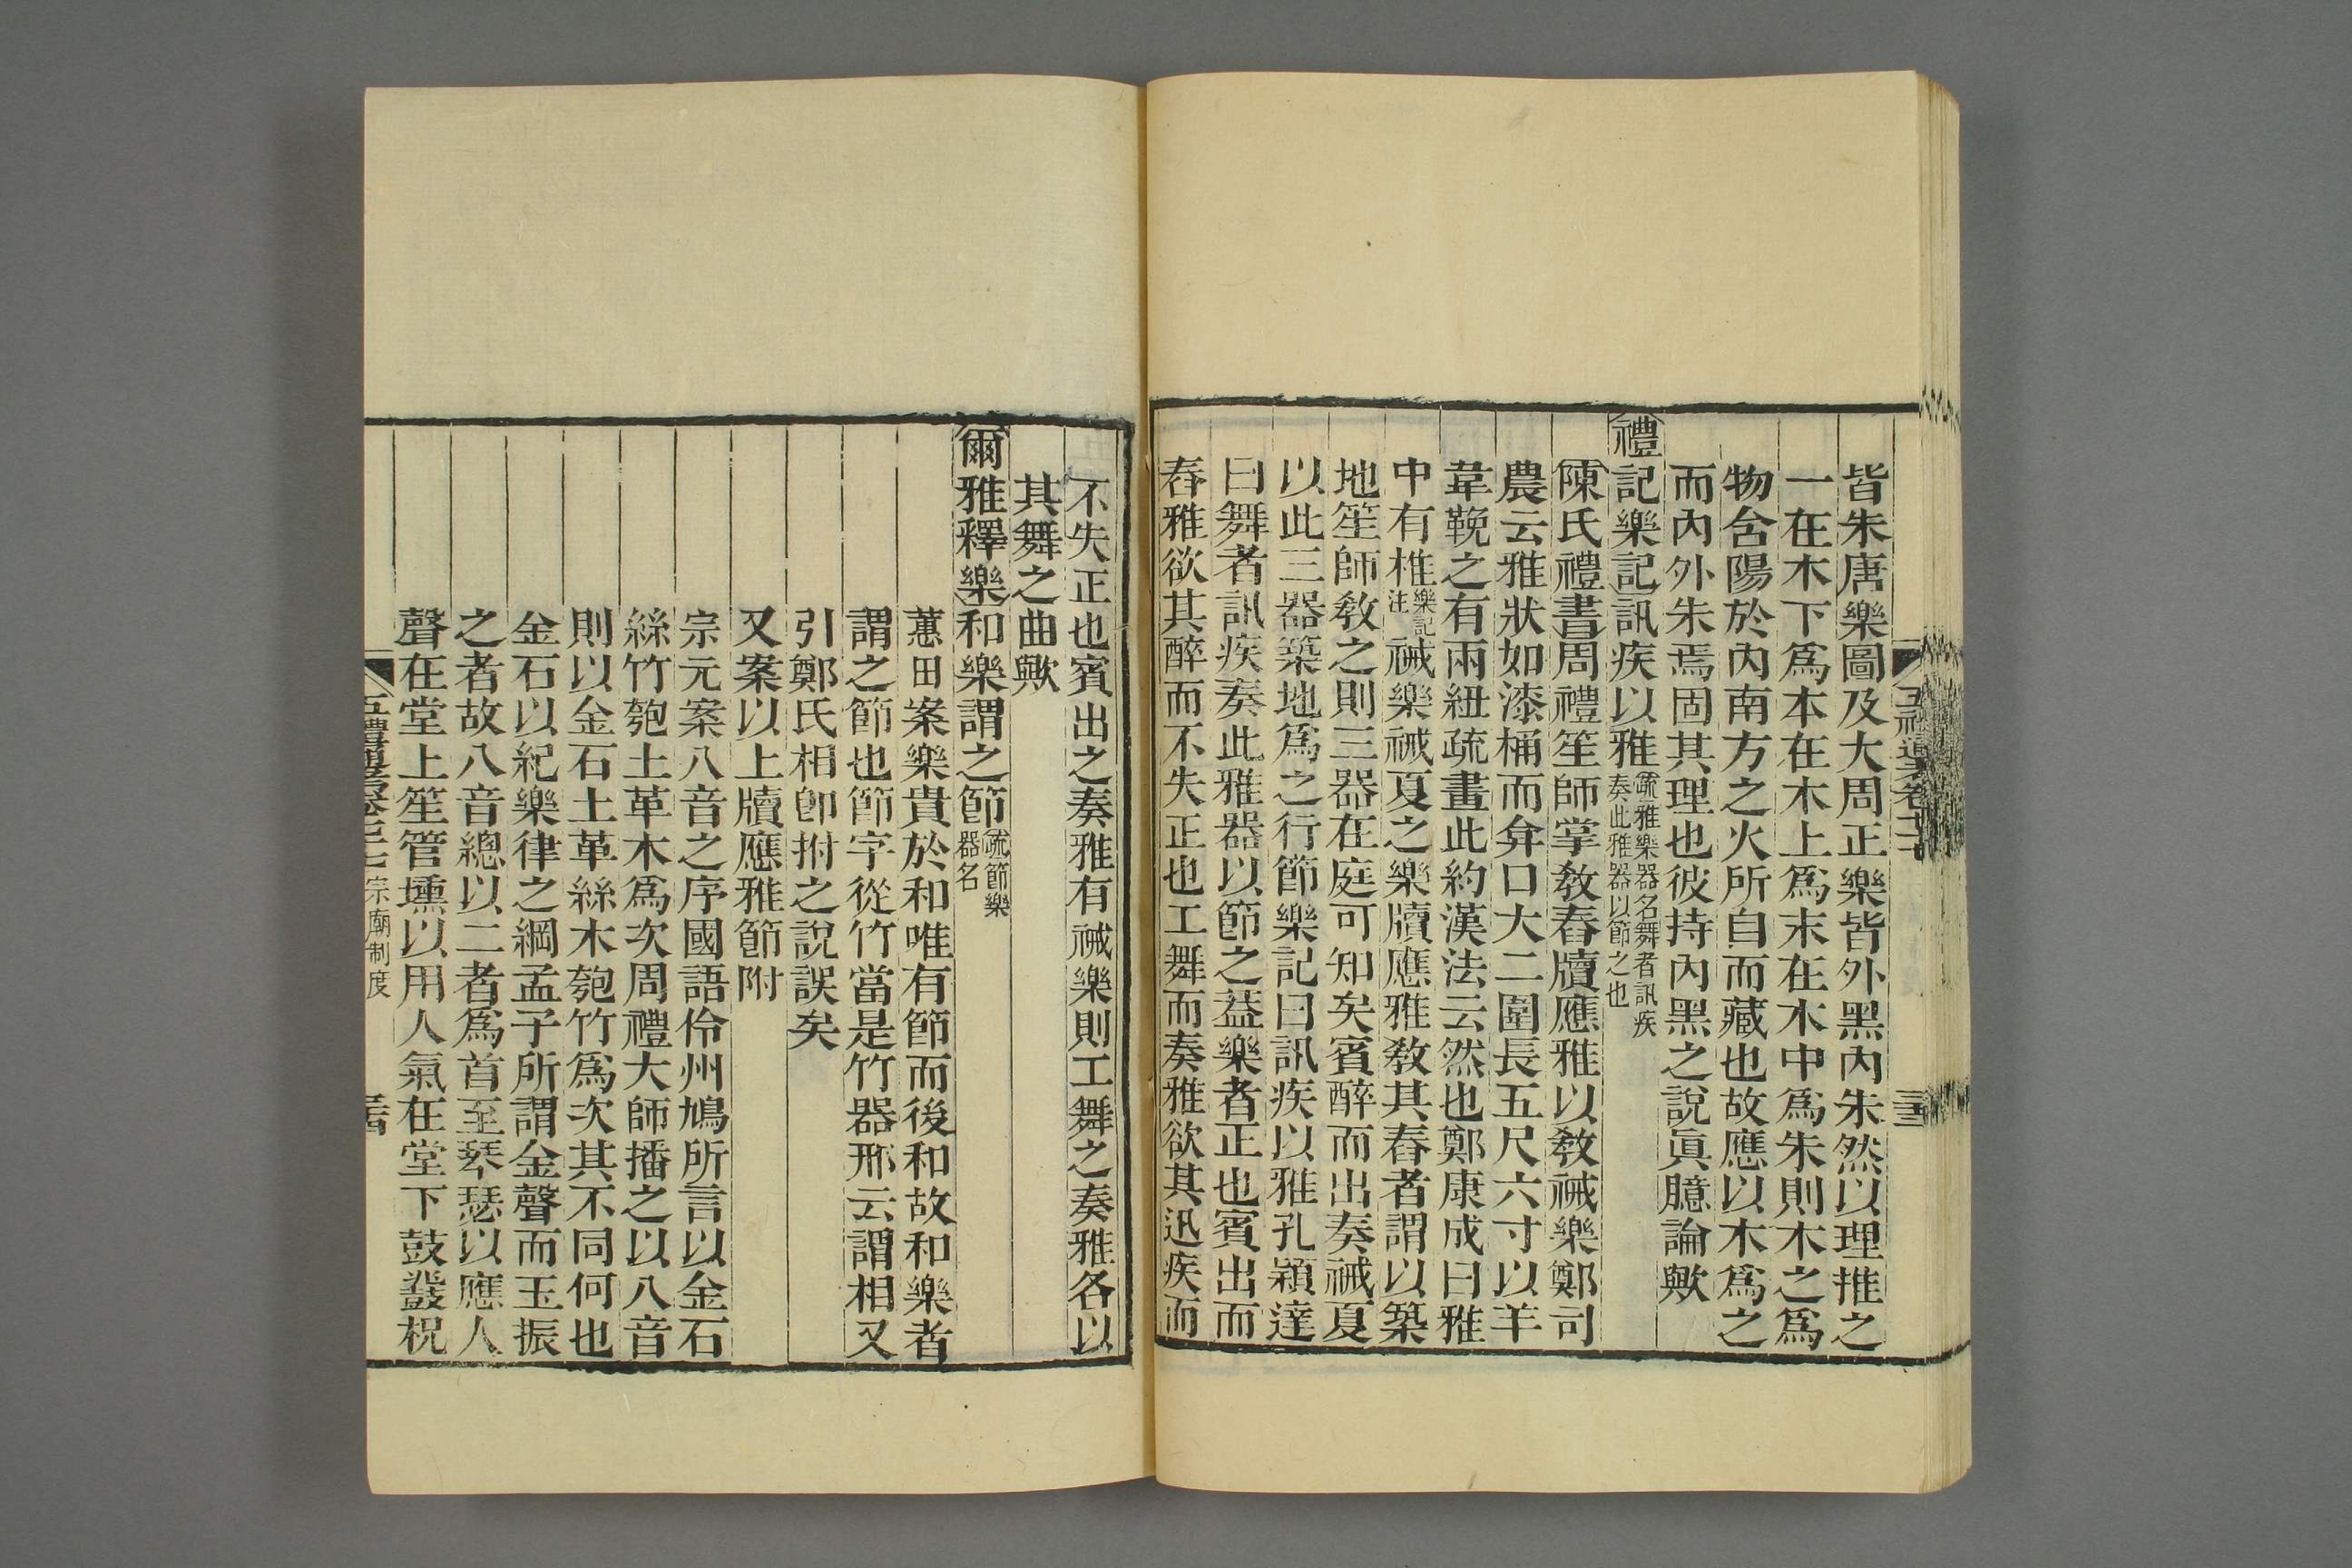 皆朱唐樂圖及大周正樂皆外黑內朱然以理推之
一在木下爲本在木上爲末在木中爲朱則木之爲
物含陽於內南方之火所自而藏也故應以木爲之
而內外朱焉固其理也彼持內黑之說眞臆論歟
禮記樂記訊疾以雅疏雅樂器名舞者訊疾奏此雅器以節之也
陳氏禮書周禮笙師掌敎舂牘應雅以敎祴樂鄭司
農云雅狀如漆桶而弇口大二圍長五尺六寸以羊
韋鞔之有兩紐疏畫此約漢法云然也鄭康成曰雅
中有椎樂記注祴樂祴夏之樂牘應雅敎其舂者謂以築
地笙師敎之則三器在庭可知矣賓醉而出奏祴夏
以此三器築地爲之行節樂記曰訊疾以雅孔穎達
曰舞者訊疾奏此雅器以節之葢樂者正也賓出而
舂雅欲其醉而不失正也工舞而奏雅欲其迅疾而
不失正也賓出之奏雅有祴樂則工舞之奏雅各以
其舞之曲歟
爾雅釋樂和樂謂之節疏節樂器名
蕙田案樂貴於和唯有節而後和故和樂者
謂之節也節字從竹當是竹器邢云謂相又
引鄭氏相卽拊之說誤矣
又案以上牘應雅節附
宗元案八音之序國語伶州鳩所言以金石
絲竹匏土革木爲次周禮大師播之以八音
則以金石土革絲木匏竹爲次其不同何也
金石以紀樂律之綱孟子所謂金聲而玉振
之者故八音總以二者爲首至琴瑟以應人
聲在堂上笙管壎以用人氣在堂下鼓鼗柷
五禮通考卷七十七 宗廟制度